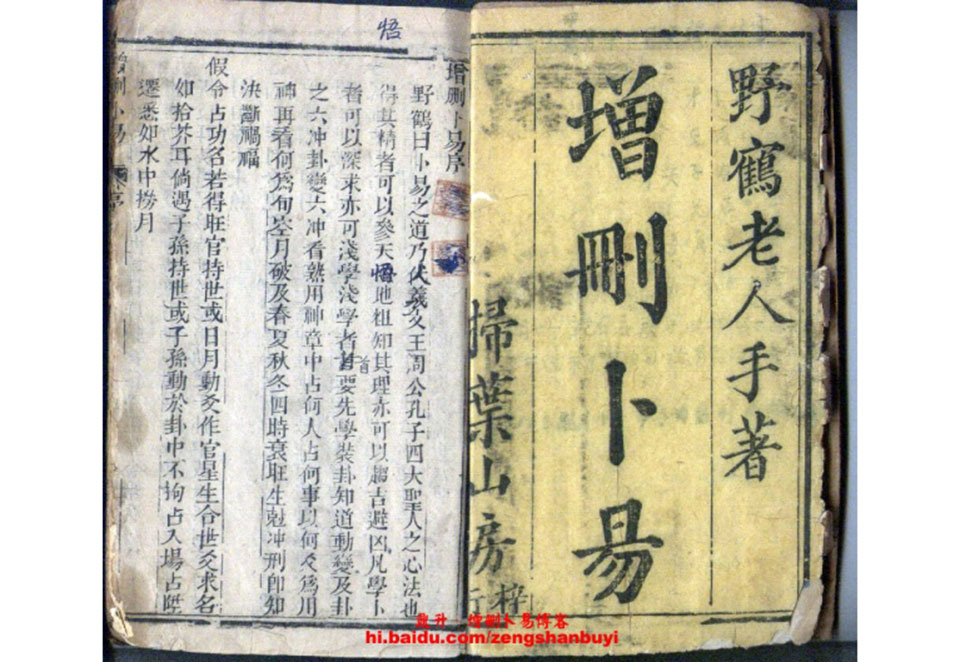 野鶴老人手著
增刪卜易
掃葉山房梓行
悟
增刪卜易序
野鶴曰卜易之道乃伏羲文王周公孔子四大聖人之心法也
得其精者可以參天悟地祖知其理亦可以趨吉避凶凡學卜
者可以深求亦可淺學淺學者首要先學裝卦知道動變及卦
首
之六冲卦變六冲看熟用神章中占何人占何事以何爻爲用
神再看何爲旬空月破及春夏秋冬四時衰旺生尅冲刑卽知
決斷禍福
假令占功名若得旺官持世或日月動爻作官星生合世爻求名
如拾芥耳倘遇子孫持世或子孫動於卦中不拘占入場占陞
遷悉如水中撈月
增刪卜易 序
鼎升 增刪卜易博客
hi.baidu.com/zengshanbuyi